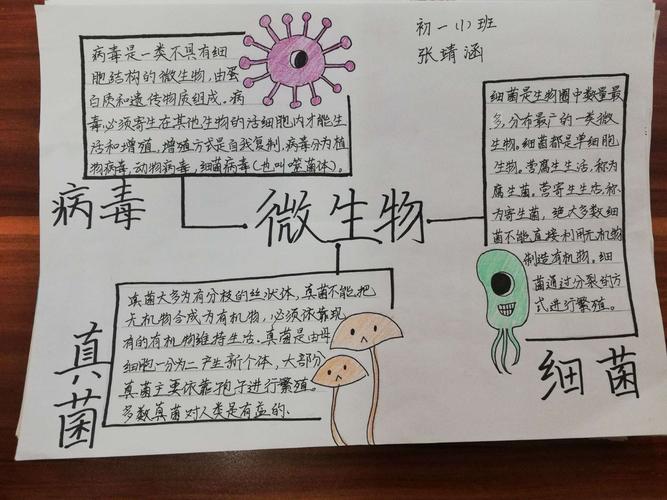 初一(1)班
张琦涵
病毒是一类不具有细
胞结构的微生物,由蛋
白质和遗传物质组成。病
毒必须寄生在其他生物的活细胞内才能生
活和增殖,增殖方式是自我复制。病毒分为植
物病毒,动物病毒,细菌病毒(也叫噬菌体)。
病毒
微生物
细菌是生物圈中数量最
多,分布最广的一类微
生物。细菌都是单细胞
生物。营腐生生活,称为
腐生菌。营寄生生活,称
为寄生菌,绝大多数细
菌不能直接利用无机物
制造有机物。细
菌通过分裂的方
式进行繁殖。
细菌
真菌大多为有分枝的丝状体,真菌不能把
无机物合成为有机物,必须依靠现
有的有机物维持生活。真菌是由母
细胞一分为二产生新个体,大部份
真菌主要依靠孢子进行繁殖。
多数真菌对人类是有益的、
真菌